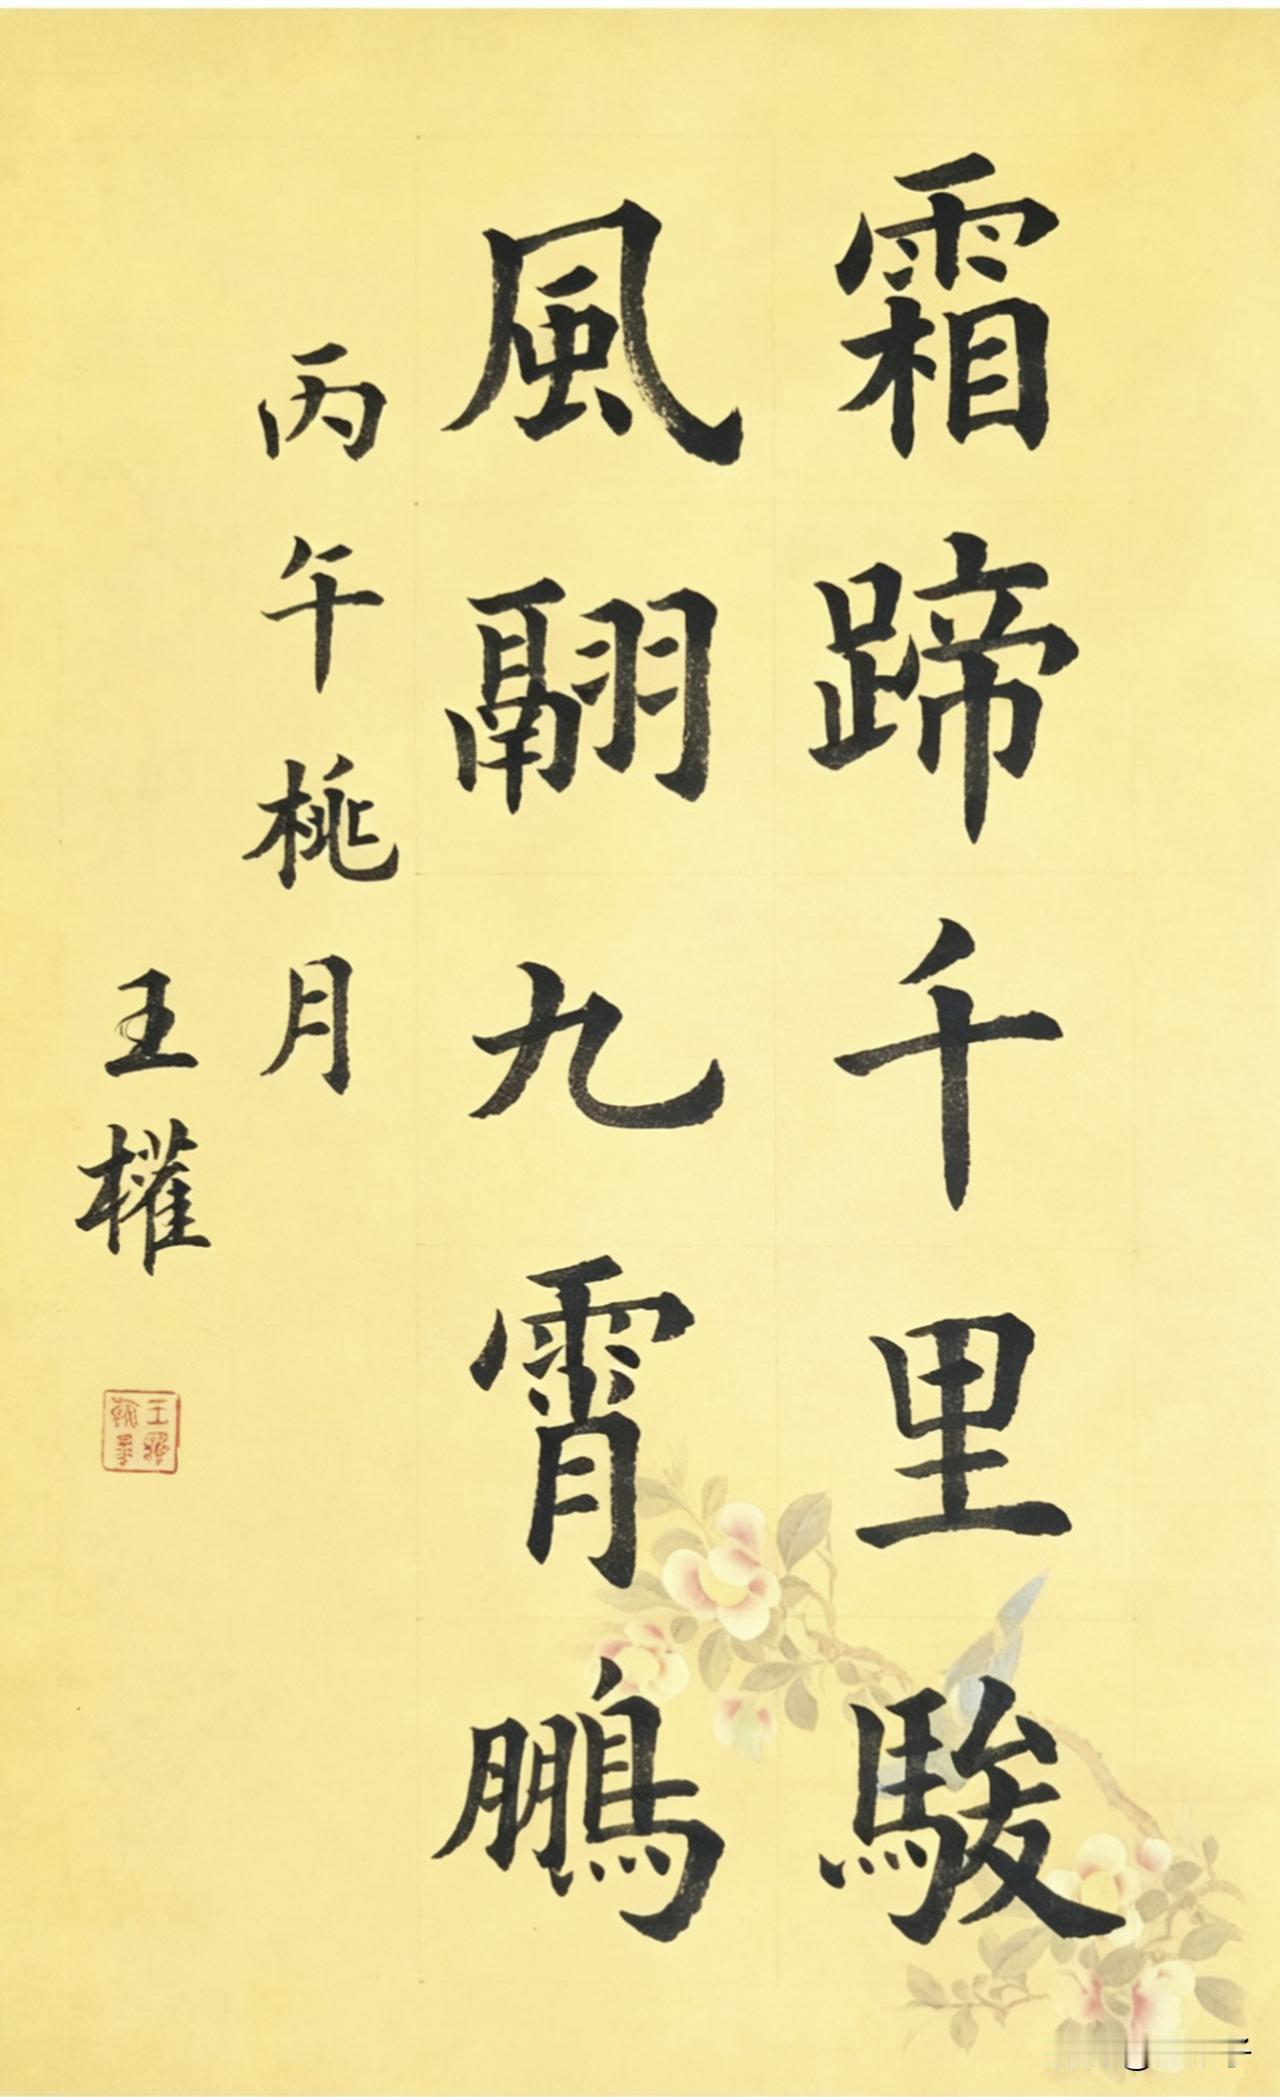 霜蹄千里駿
風翮九霄鵬
丙午桃月
王權